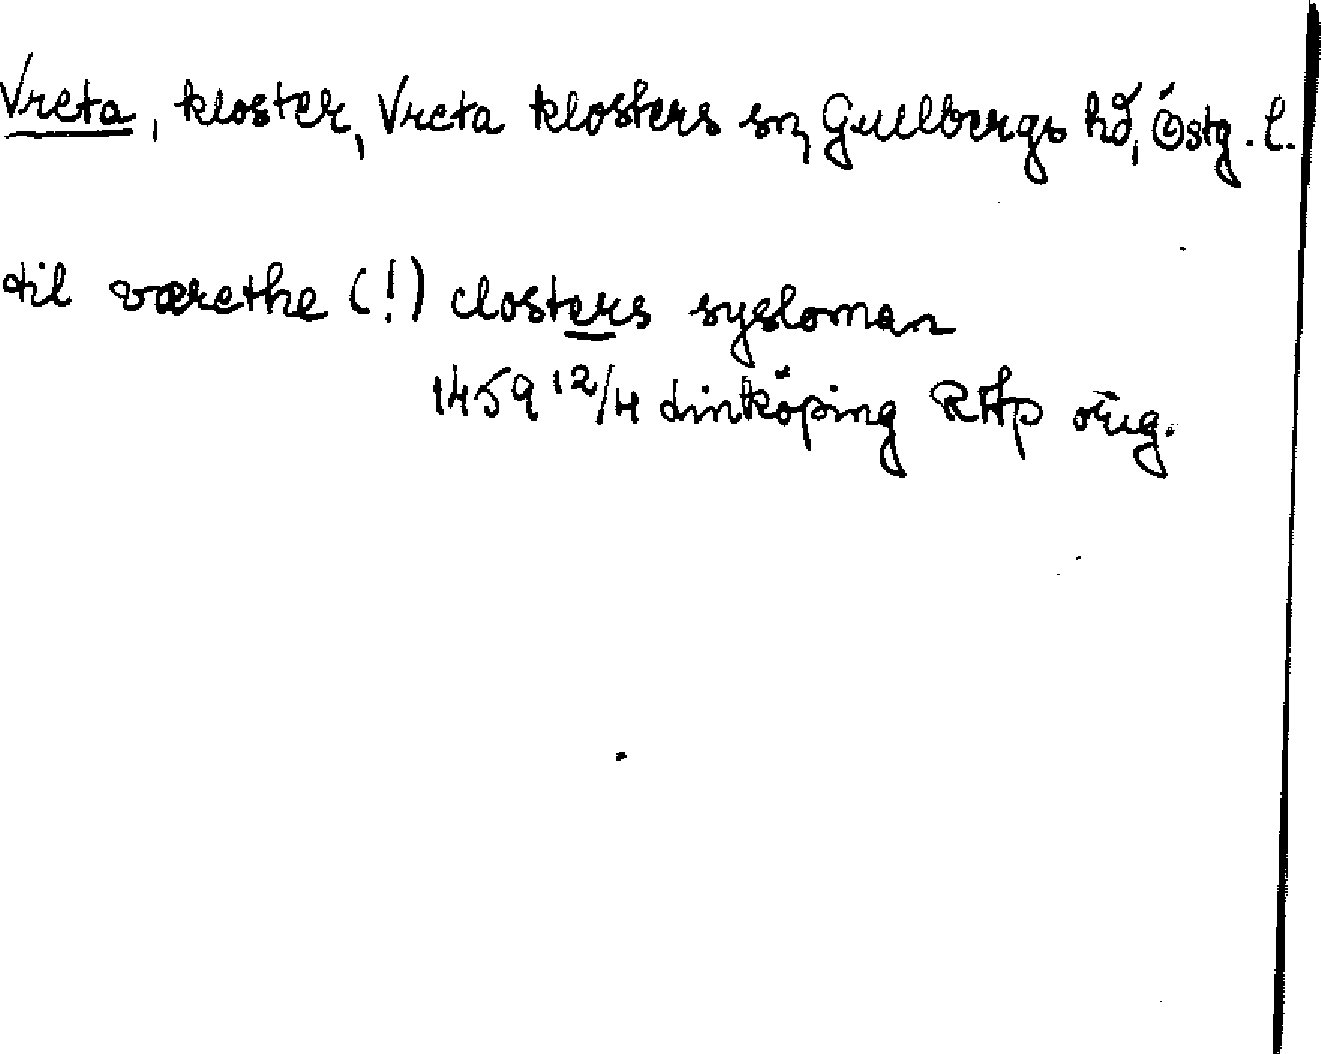 Vreta, kloster, Vreta klosters sn, Gullbergs hd, Östg. l.
til værethe (!) closters sysloman
1459 12/4 Linköping RAp orig.